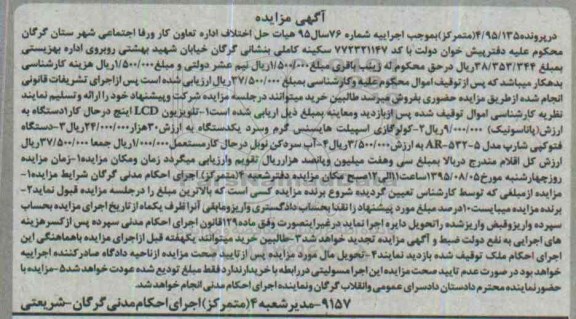 آگهی مزایده
در پرونده ۴/۹۵/۱۳۵ (متمرکز) بموجب اجراییه شماره ۷۶سال۹۵ هیات حل اختلاف اداره تعاون کار ورفا اجتماعی شهرستان گرگان
محکوم علیه دفترپیش خوان دولت با کد ۷۷۲۳۲۱۱۴۷ سکینه کاملی بنشانی گرگان خیابان شهید بهشتی روبروی اداره بهزیستی
بمبلغ ۳۸/۳۵۳/۳۴۴ریال درحق محکوم له رشید باقری مبلغ۱/۵۰۰/۰۰۰ریال نیم عشر دولتی و مبلغ۱/۵۰۰/۰۰۰ریال هزینه کارشناسی
بدهکار میباشد که پس از توقیف اموال محکوم علیه وکارشناسی بمبلغ ۳۷/۵۰۰/۰۰۰ریال ارزیابی شده است پس ازاجرای تشریفات قانونی
انجام شده از طریق مزایده حضوری بفروش میرسد طالبین خرید میتوانند در جلسه مزایده شرکت وپیشنهاد خود را ارائه و تسلیم نمایند
نظریه کارشناسی اموال توقیف شده پس ازبازدید ومعاینه بمبلغ ذیل ارزیابی شده است۱-تلویزیون LCD اینچ درحال کار۱دستگاه به
ارزش(پاناسونیک) ۹/۰۰۰/۰۰۰ریال۲-کولرگازی اسپیلت هایسنس گرم وسرد یکدستگاه به ارزش۳۰هزار۲۴/۰۰۰/۰۰۰ریال۳-دستگاه
فتوکپی شارپ مدل AR-۵۳۲۰۵ به ارزش۳/۵۰۰/۰۰۰ریال۴-آب سردکن نوبل درحال کارمستعمل۱/۰۰۰/۰۰۰ریال جمعا ۳۷/۵۰۰/۰۰۰ریال
ارزش کل اقلام مندرج دربالا بمبلغ سی وهفت میلیون وپانصد هزارریال تقویم وارزیابی میگردد زمان ومکان مزایده۱-زمان مزایده
روزچهارشنبه مورخ۱۳۹۵/۰۸/۰۵ساعت۱۱الی۱۲صبح مکان مزایده دفترشعبه۴(متمرکز) اجرای احکام مدنی گرگان شرایط مزایده۱-
مزایده ازمبلغی که توسط کارشناس تعیین گردیده شروع برنده مزایده کسی است که بالاترین مبلغ را درجلسه مزایده قبول نماید۲-
برنده مزایده میبایست۱۰درصد مبلغ مورد پیشنهاد را نقدا بحساب دادگستری واریزومابقی آنرا ظرف یکماه ازتاریخ اجرای مزایده بحساب
سپرده واریزوقبض واریزشده را تحویل دایره اجرا نماید درغیراینصورت وفق ماده۱۲۹قانون اجرای احکام مدنی سپرده پس از کسرهزینه
های اجرایی به نفع دولت ضبط و آگهی مزایده تجدید خواهد شد۳-طالبین خرید میتوانند یکهفته قبل ازاجرای مزایده باهماهنگی این
اجرای احکام ملک توقیف شده بازدید نمایند۴-تحویل مال مورد مزایده پس از تایید صحت مزایده ازناحیه دادگاه صادرکننده اجراییه
خواهد بود در صورت عدم تایید صحت مزایده این اجرا مسولیتی دررابطه با خریدارندارد فقط مبلغ تودیع شده عودت خواهد شد۵-مزایده با
حضورنماینده محترم دادستان دادسرای عمومی وانقلاب گرگان ونماینده اجرای احکام مدنی انجام خواهد شد.
۹۱۵۷-مدیرشعبه۴(متمرکز) اجرای احکام مدنی گرگان-شریعتی